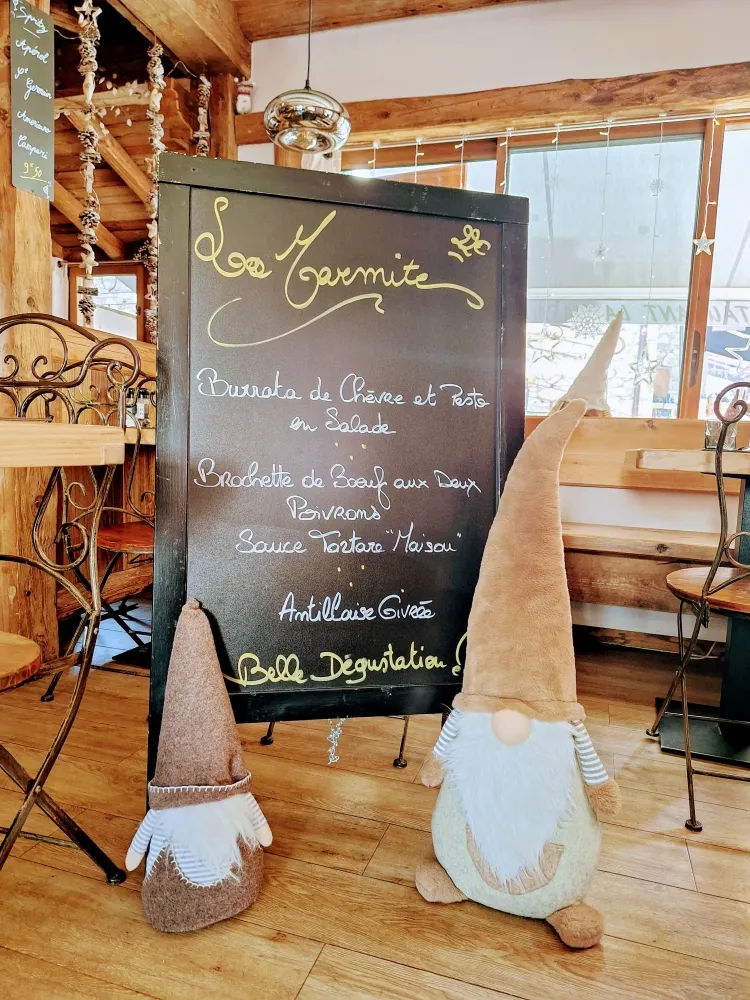 Spritz
Apérol
St Germain
Amaricano
Campari
9€50
La Marmite
Burrata de Chèvre et Pesto
en Salade
Brochette de Boeuf aux Deux
Poivrons
Sauce Tartare "Maison"
Antillaise Givrée
Belle Dégustation !